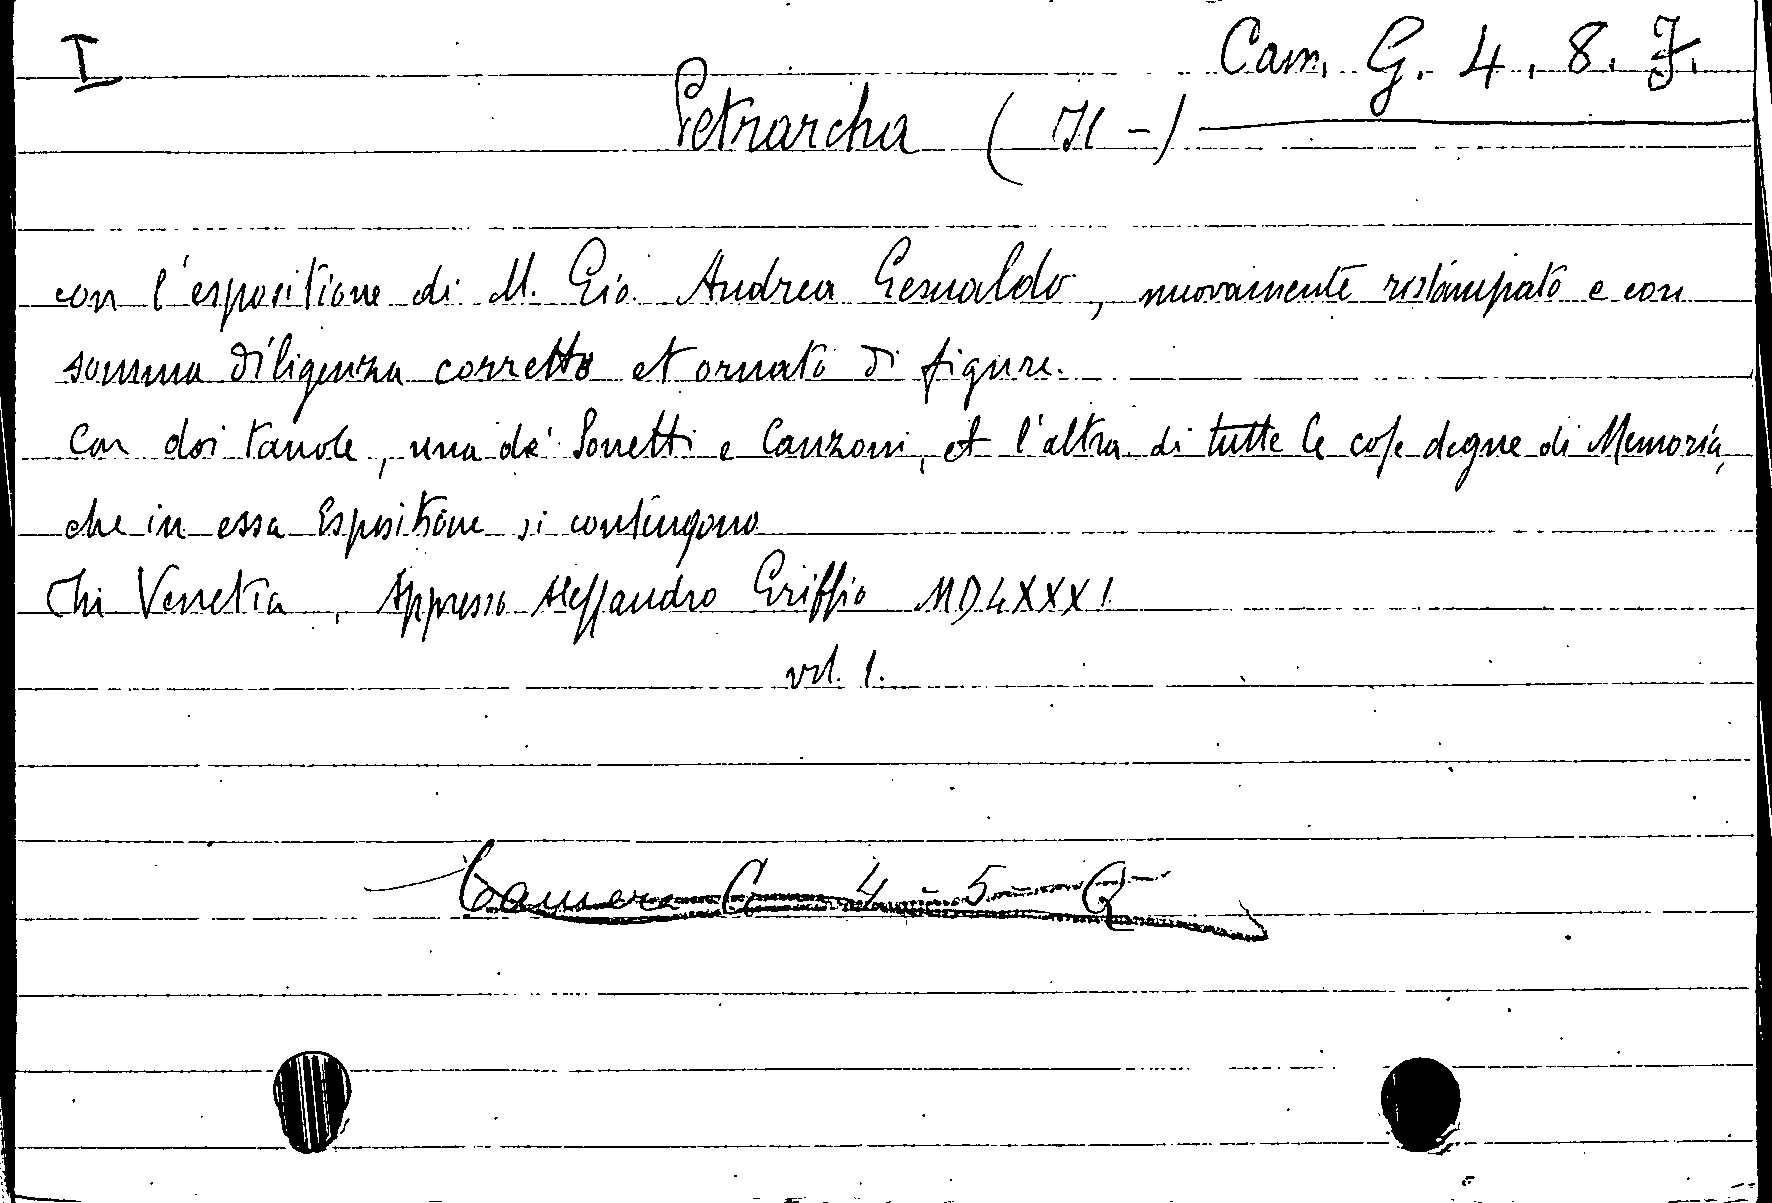 I
Cam. G. 4. 8. J.
Petrarcha (Il -)
con l'espositione di M. Gio. Andrea Gesualdo, nuovamente ristampato e con
somma diligenza corretto et ornato di figure.
Con doi tavole, una de' Sonetti e Canzoni, et l'altra di tutte le cose degne di Memoria,
che in essa Espositione si contengono
In Venetia, Appresso Alessandro Griffio MDLXXXI
vol. 1.
Camera G 4 - 5 -